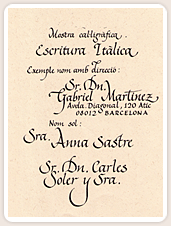 Mostra cal·ligràfica.
Escritura Itàlica
Exemple nom amb direcció:
Sr. Dn.
Gabriel Martínez
Avda. Diagonal, 120 Àtic
08012 BARCELONA
Nom sol:
Sra. Anna Sastre
Sr. Dn. Carles
Soler y Sra.